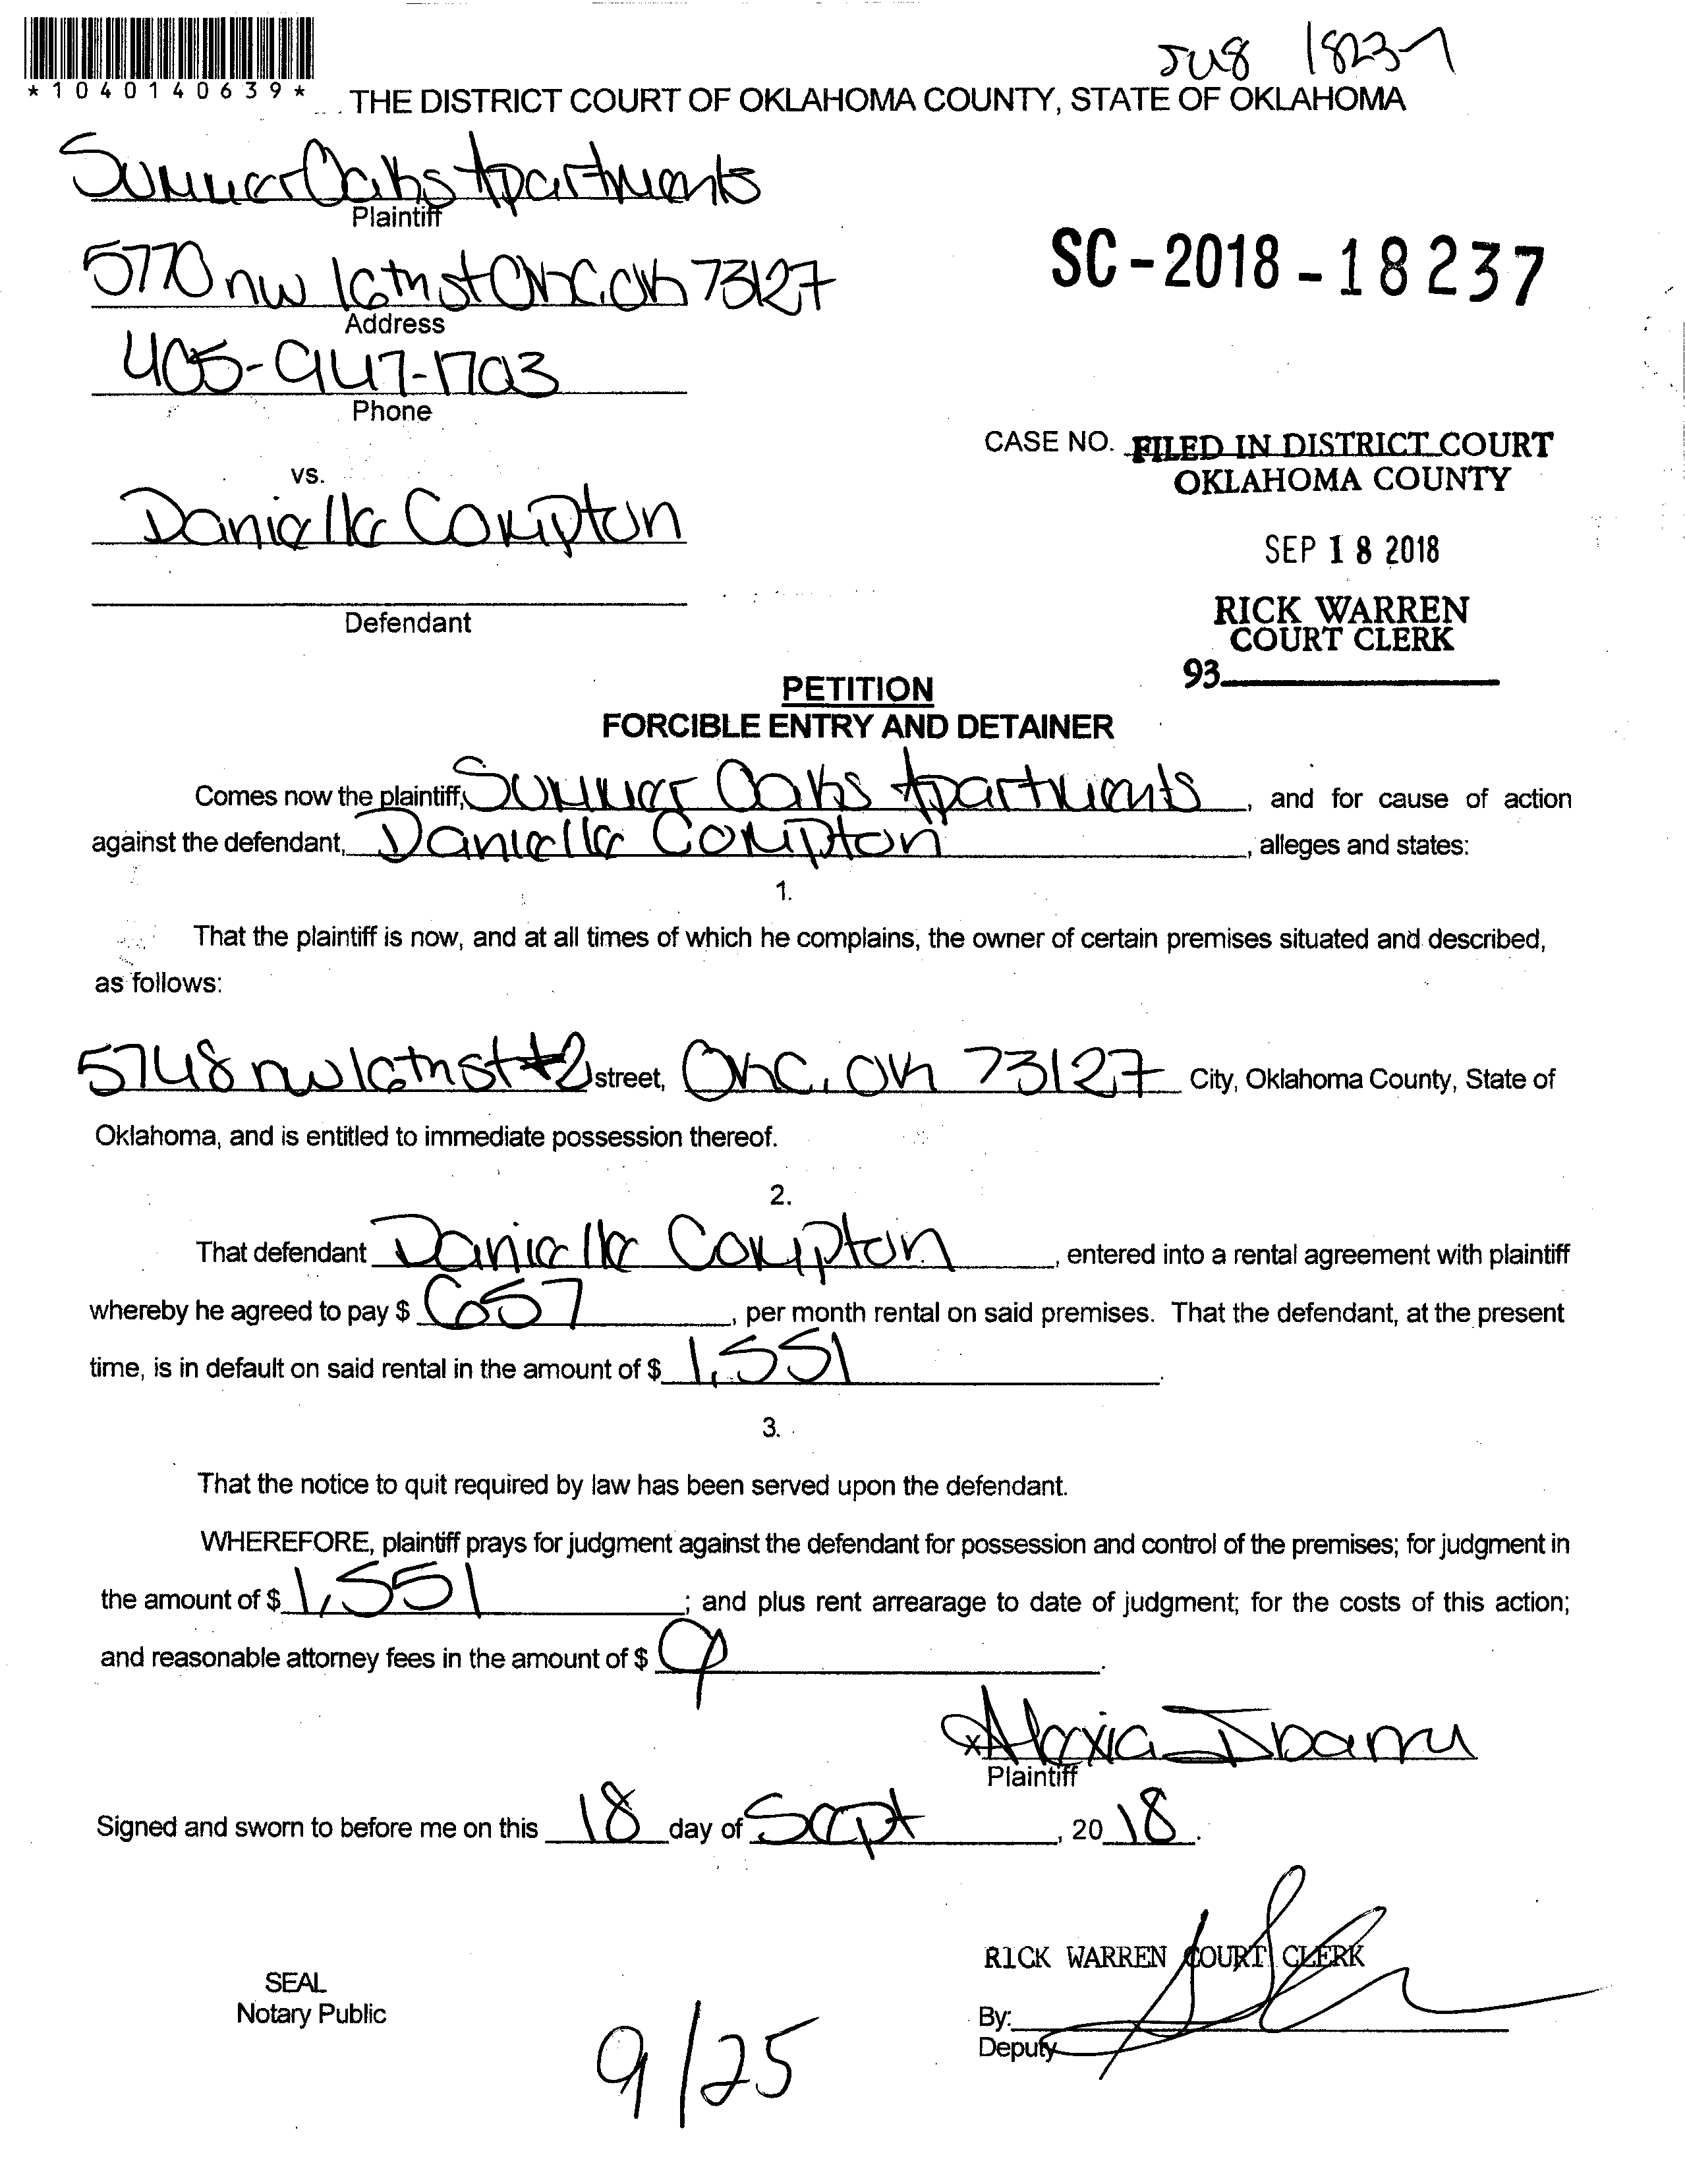 18237
*1040140639*
THE DISTRICT COURT OF OKLAHOMA COUNTY, STATE OF OKLAHOMA
Summer Oaks Apartments
Plaintiff
5770 nw 16th st OKC, OK 73127
SC-2018-18237
Address
405-947-1703
Phone
CASE NO.
FILED IN DISTRICT COURT
OKLAHOMA COUNTY
vs.
Danielle Compton
SEP 18 2018
Defendant
RICK WARREN
COURT CLERK
93
PETITION
FORCIBLE ENTRY AND DETAINER
Comes now the plaintiff, Summer Oaks Apartments, and for cause of action
against the defendant, Danielle Compton, alleges and states:
1.
That the plaintiff is now, and at all times of which he complains, the owner of certain premises situated and described,
as follows:
5748 nw 16th st #2 street, OKC, OK 73127 City, Oklahoma County, State of
Oklahoma, and is entitled to immediate possession thereof.
2.
That defendant Danielle Compton, entered into a rental agreement with plaintiff
whereby he agreed to pay $ 657, per month rental on said premises. That the defendant, at the present
time, is in default on said rental in the amount of $ 1,551.
3.
That the notice to quit required by law has been served upon the defendant.
WHEREFORE, plaintiff prays for judgment against the defendant for possession and control of the premises; for judgment in
the amount of $ 1,551; and plus rent arrearage to date of judgment; for the costs of this action;
and reasonable attorney fees in the amount of $
x Alexia Ibarra
Plaintiff
Signed and sworn to before me on this 18 day of Sept, 20 18.
RICK WARREN COURT CLERK
SEAL
Notary Public
By:
Deputy
9/25